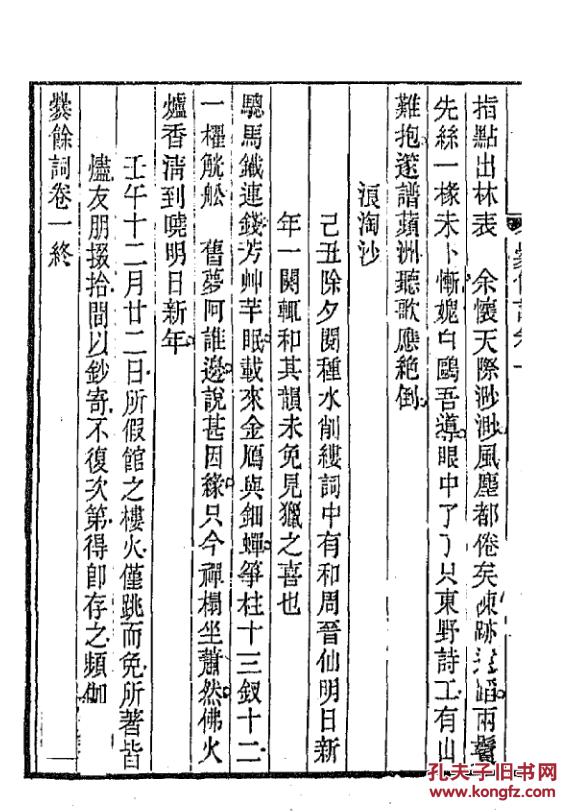 指點出林表 余懷天際渺渺風塵都倦矣陳跡 蹈兩鬢
先絲一椽未卜慚媿白鷗吾導眼中了了只東野詩工有山
難抱邃譜蘋洲聽歌應絕倒
浪淘沙
己丑除夕閱種水削縷詞中有和周晉仙明日新
年一闋輒和其韻未免見獵之喜也
驄馬鐵連錢芳艸芊眠載來金鴈與鈿蟬箏柱十三釵十二
一櫂觥船 舊夢阿誰邊說甚因緣只今禪榻坐蕭然佛火
爐香清到曉明日新年
壬午十二月廿二日所假館之樓火僅跳而免所著皆
燼友朋掇拾間以鈔寄不復次第得卽存之頻伽
爨餘詞卷一終
孔夫子旧书网
www.kongfz.com